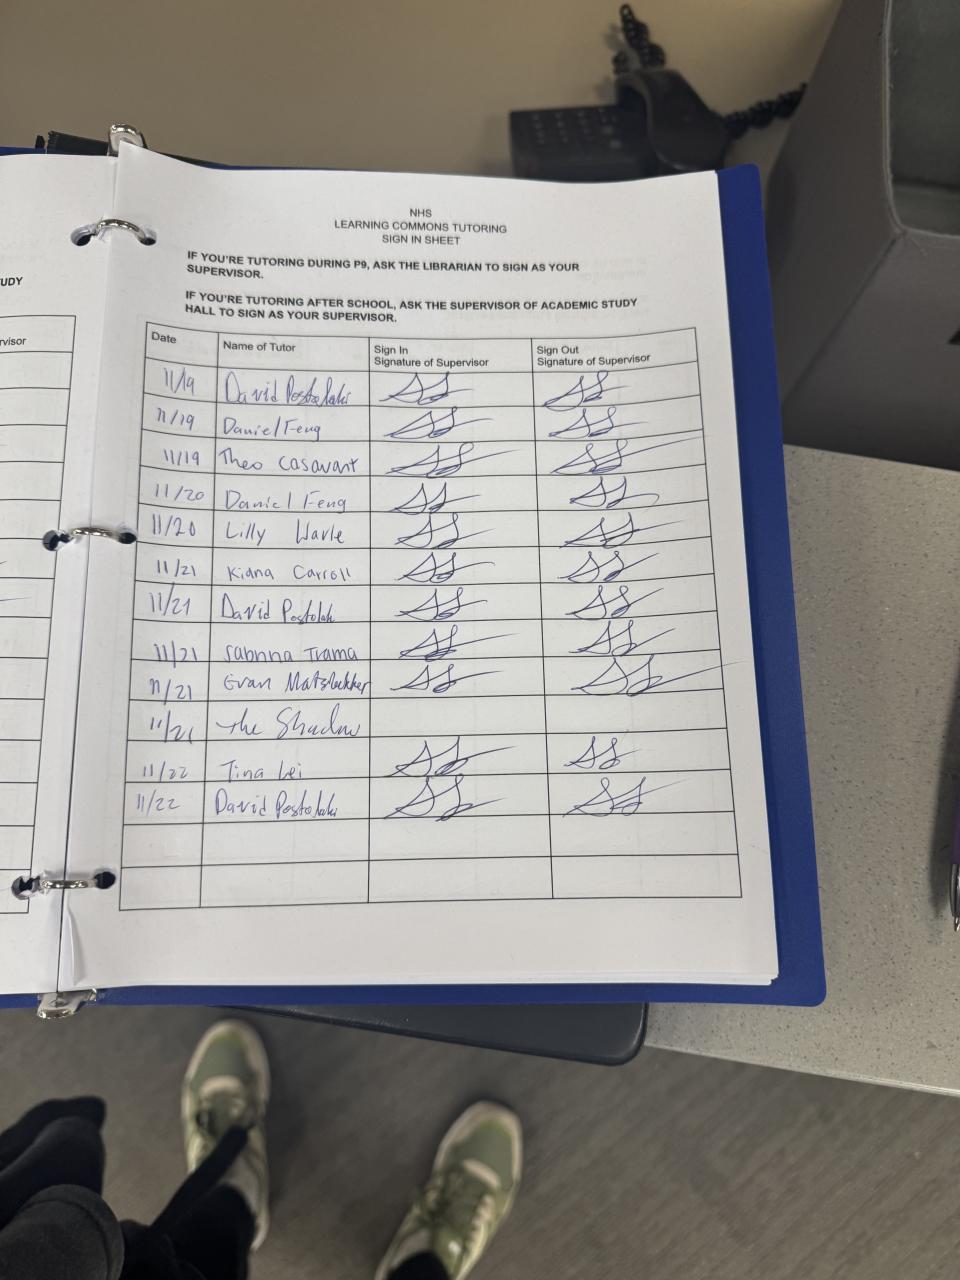 NHS
LEARNING COMMONS TUTORING
SIGN IN SHEET
IF YOU'RE TUTORING DURING P9, ASK THE LIBRARIAN TO SIGN AS YOUR
SUPERVISOR.
IF YOU'RE TUTORING AFTER SCHOOL, ASK THE SUPERVISOR OF ACADEMIC STUDY
HALL TO SIGN AS YOUR SUPERVISOR.
Date Name of Tutor Sign In Signature of Supervisor Sign Out Signature of Supervisor
11/19 David Postolaki
11/19 Daniel Feng
11/19 Theo Casavant
11/20 Daniel Feng
11/20 Lilly
11/21 Kiana Carroll
11/21 David
11/21 Sabrina Trama
11/21 Evan
11/21 The Shadow
11/22 Tina Lei
11/22 David Postolaki
UDY
rvisor